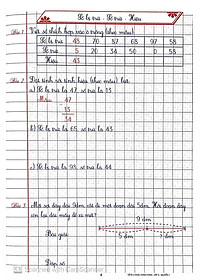 Số bị trừ - Số trừ - Hiệu
Bài 1 Viết số thích hợp vào ô trống (theo mẫu)
Số bị trừ 48 70 87 68 97 58
Số trừ 5 20 34 50 0 58
Hiệu 43
Bài 2 Đặt tính rồi tính hiệu (theo mẫu) biết:
a) Số bị trừ là 47, số trừ là 13
Mẫu 47
- 13
34
b) Số bị trừ là 65, số trừ là 43
c) Số bị trừ là 98, số trừ là 44
Bài 3 Một sợi dây dài 9dm, cắt đi một đoạn dài 5dm. Hỏi đoạn dây
còn lại dài mấy đề xi mét?
9 dm
Bài giải
5 dm ? dm
Đáp số
Scanned with CamScanner